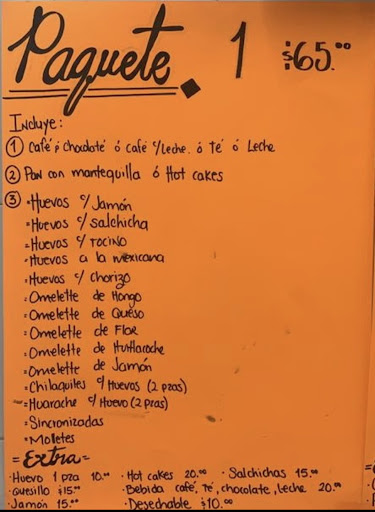 Paquete 1 $65.00
Incluye:
1 Café ó Chocolate ó café c/Leche ó té ó Leche
2 Pan con mantequilla ó Hot cakes
3 -Huevos c/ Jamón
-Huevos c/ salchicha
-Huevos c/ TOCINO
-Huevos a la mexicana
-Huevos c/ Chorizo
-Omelette de Hongo
-Omelette de Queso
-Omelette de FLOR
-Omelette de Huitlacoche
-Omelette de Jamón
-Chilaquiles c/ Huevos (2 pzas)
-Huarache c/ Huevo (2 pzas)
-Sincronizadas
-Molletes
=Extra=
·Huevo 1 pza 10.00 ·Hot cakes 20.00 ·Salchichas 15.00
·Quesillo $15.00 ·Bebida café, té, chocolate, leche 20.00
·Jamón 15.00 ·Desechable $10.00